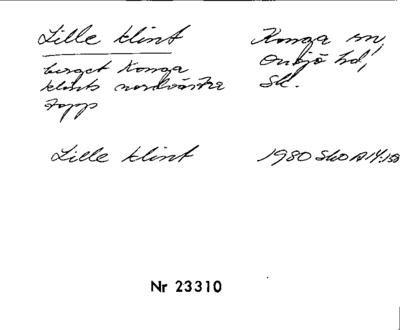 Lille klint
Konga sn,
Onsjö hd,
Sk.
berget Konga
klints nordvästra
topp
Lille klint
1980 Sko
Nr 23310